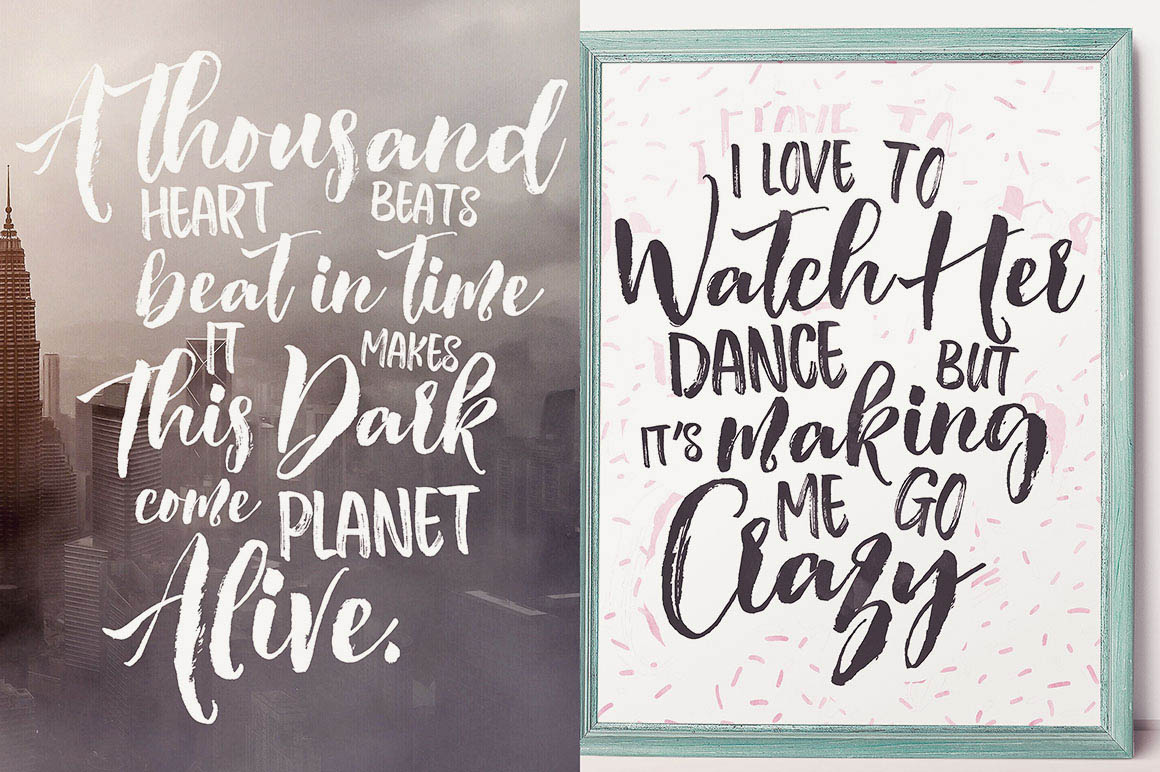 A thousand
HEART BEATS
beat in time
IT MAKES
This Dark
come PLANET
Alive.
I LOVE TO
I LOVE TO
Watch Her
DANCE BUT
IT'S making
ME GO
Crazy